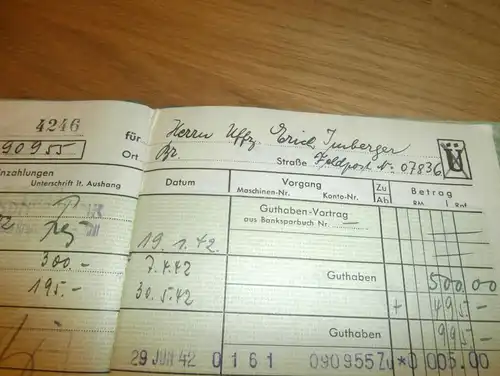 4246
für Herrn Uffz. Erich Imberger
90955 Ort Br. Straße Feldpost Nr. 07836 Ü
inzahlungen Datum Vorgang Zu Betrag
Unterschrift lt. Aushang Maschinen-Nr. Konto-Nr. Ab RM Rpf
Guthaben-Vortrag
aus Banksparbuch Nr.
19.1.42.
300.- 7.4.42 Guthaben 500.00
195.- 30.5.42 + 495.-
Guthaben 995.-
29 JUN 42 0 161 090955 Zu *0 005.00